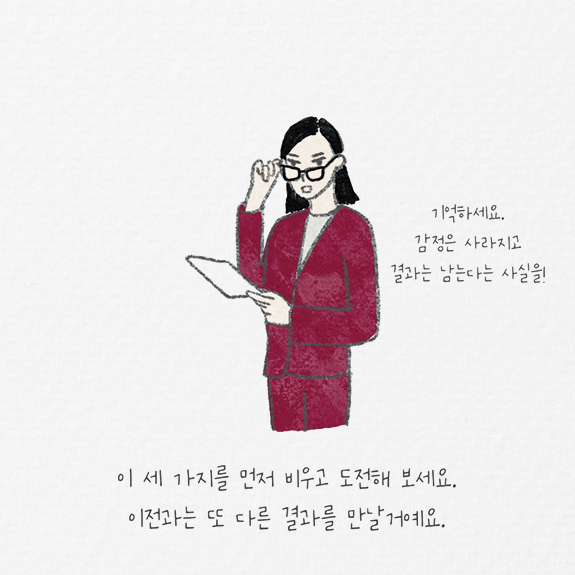 기억하세요.
감정은 사라지고
결과는 남는다는 사실을!
이 세 가지를 먼저 비우고 도전해 보세요.
이전과는 또 다른 결과를 만날거예요.